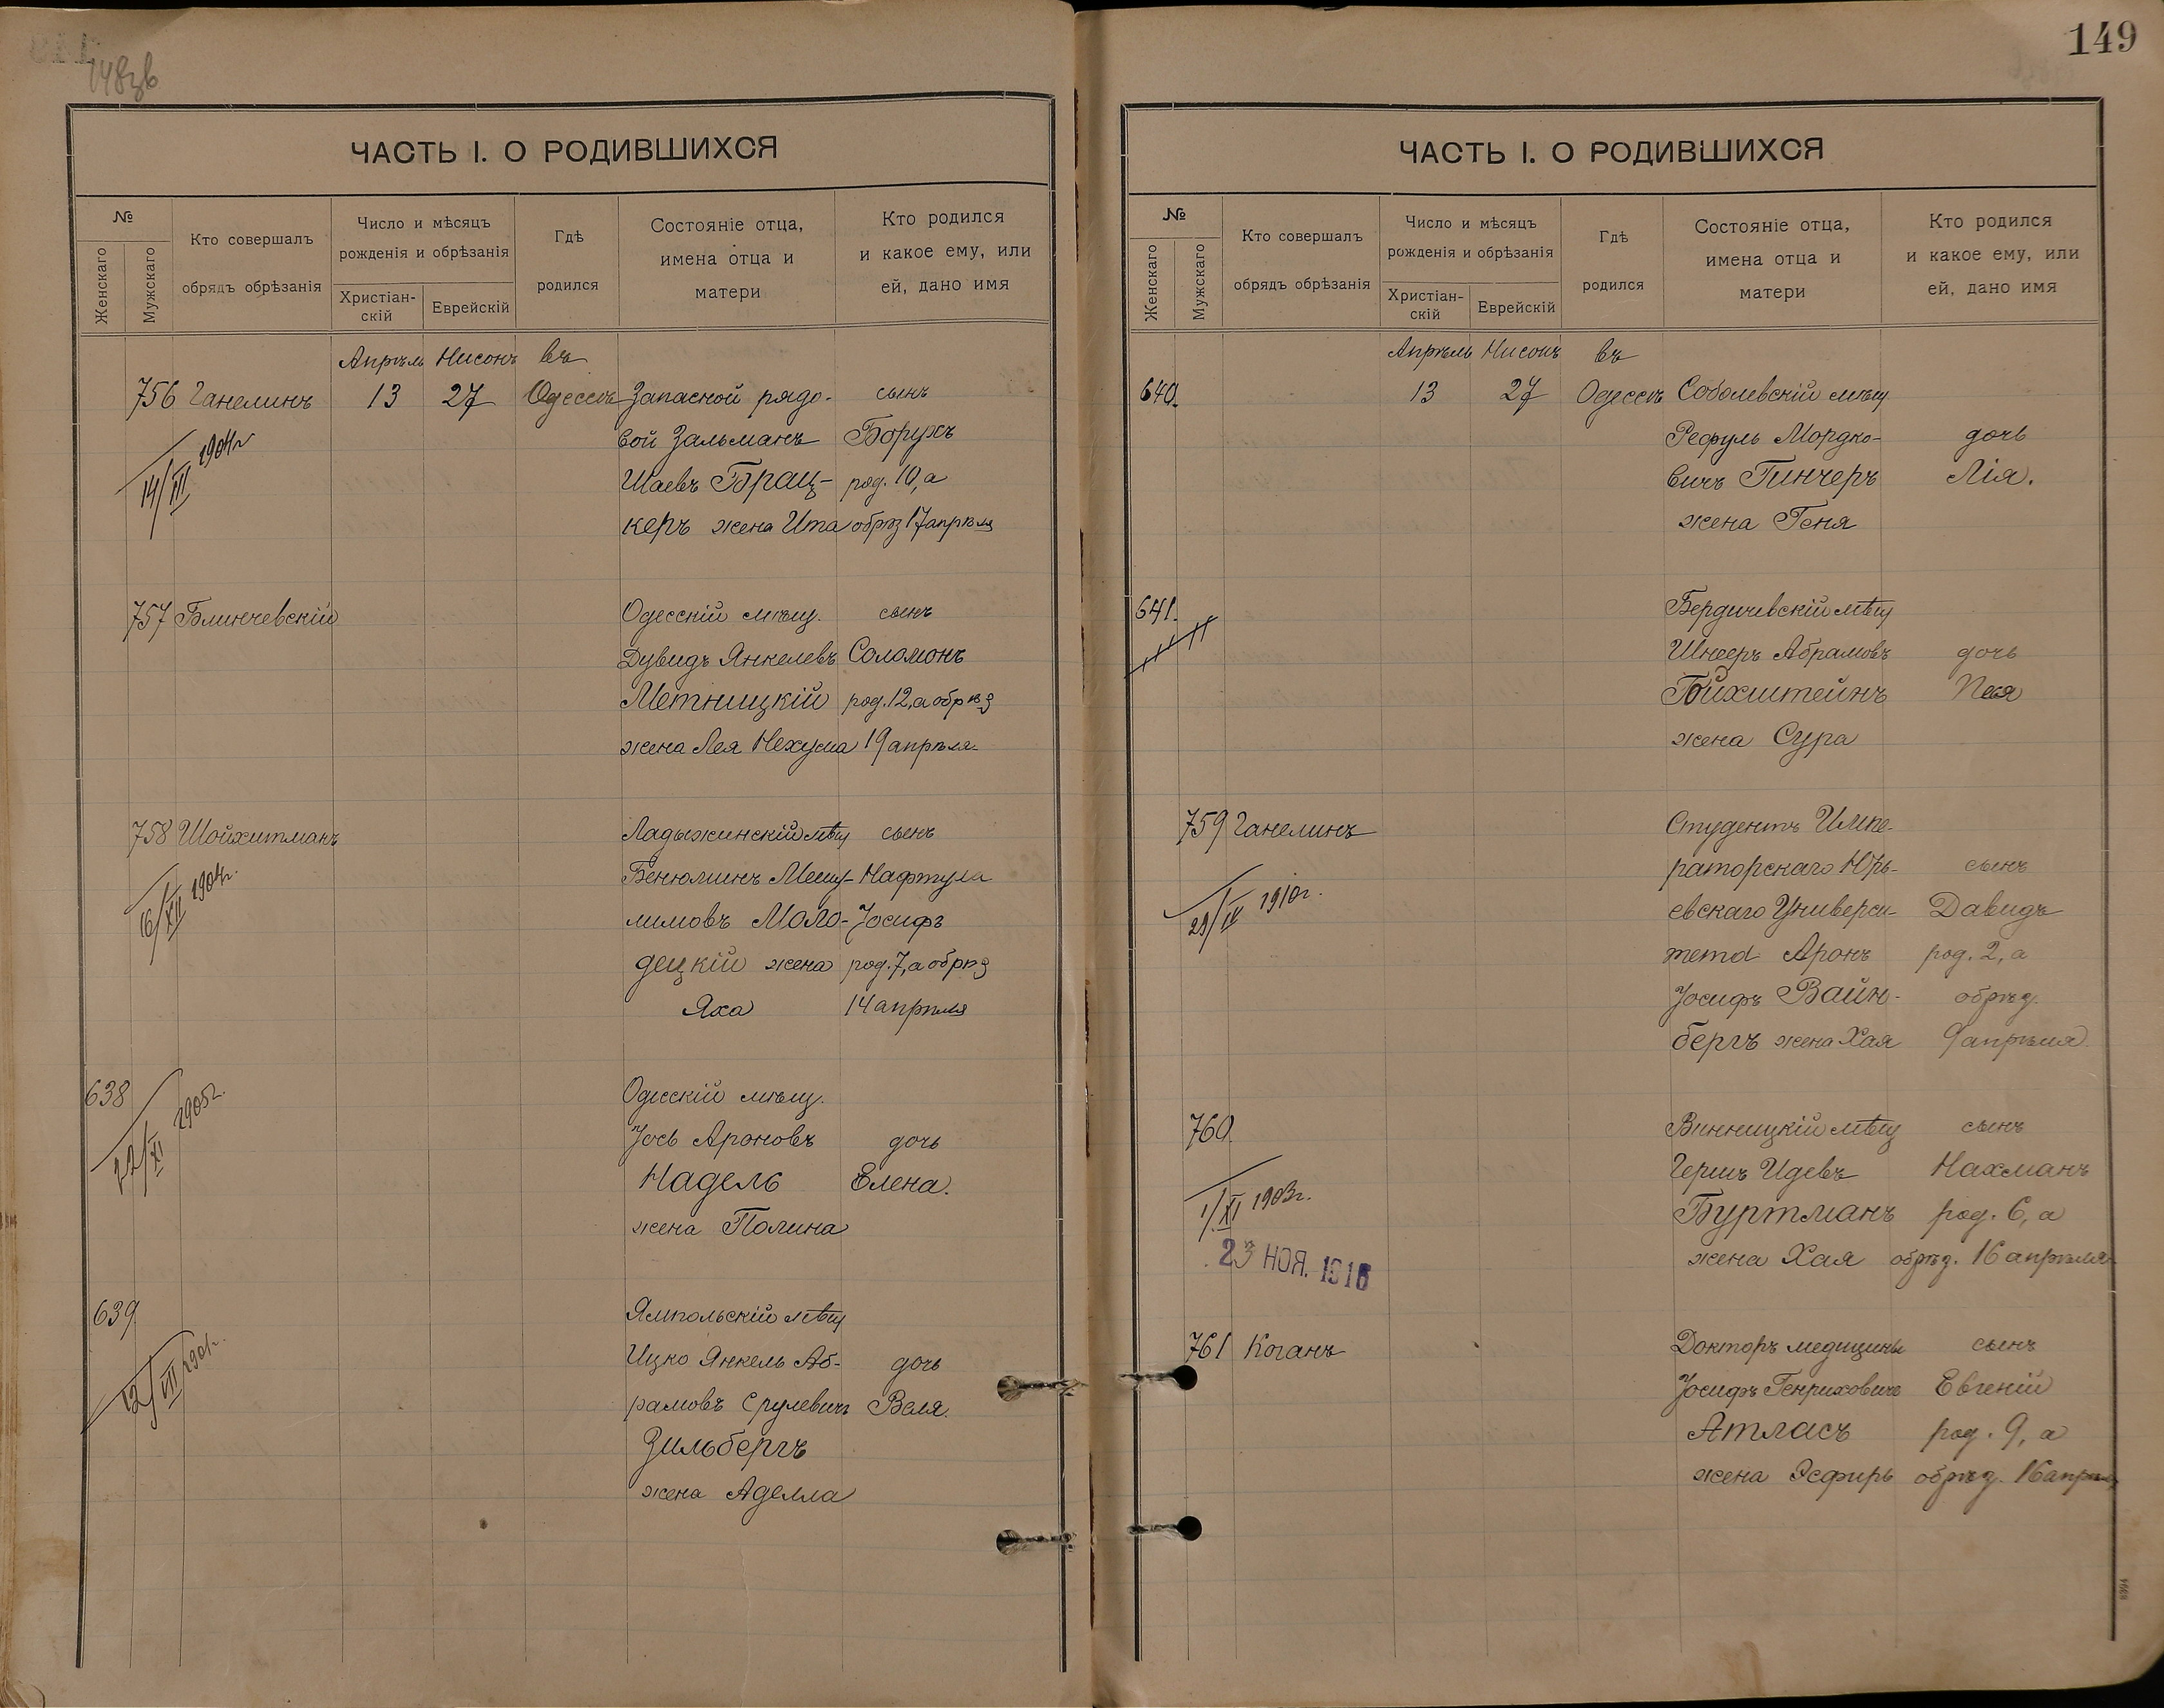 148зв
ЧАСТЬ I. О РОДИВШИХСЯ
№
Женскаго
Мужскаго
Кто совершалъ
обрядъ обрѣзанія
Число и мѣсяцъ
рожденія и обрѣзанія
Христіан-
скій
Еврейскій
Гдѣ
родился
Состояніе отца,
имена отца и
матери
Кто родился
и какое ему, или
ей, дано имя
Апрѣль Нисонъ въ
756 Ганелинъ 13 27 Одессѣ Запасной рядо- сынъ
вой Зальманъ Борухъ
14/III 1904г
Шаевъ Брац- род. 10, а
керъ жена Ита обрѣз 17 апрѣля
757 Блинчевскій Одесскій мѣщ. сынъ
Дувидъ Янкелевъ Соломонъ
Метницкій род. 12, а обрѣз
жена Лея Нехума 19 апрѣля.
758 Шойхитманъ Ладыжинскій мѣщ сынъ
16/XII 1904г.
Бенюминъ Мешу- Нафтула
лимовъ Моло- Іосифъ
децкій жена род. 7, а обрѣз
Яха 14 апрѣля
638 Одесскій мѣщ.
22/XI 1905г.
Іось Ароновъ дочь
Надель Елена.
жена Полина
639 Ямпольскій мѣщ
12/VII 1901г.
Ицко Янкель Аб- дочь
рамовъ Срулевичъ Веля.
Зильбергъ
жена Аделла
149
ЧАСТЬ I. О РОДИВШИХСЯ
№
Женскаго
Мужскаго
Кто совершалъ
обрядъ обрѣзанія
Число и мѣсяцъ
рожденія и обрѣзанія
Христіан-
скій
Еврейскій
Гдѣ
родился
Состояніе отца,
имена отца и
матери
Кто родился
и какое ему, или
ей, дано имя
Апрѣль Нисонъ въ
640. 13 27 Одессѣ Соболевскій мѣщ
Рефуль Мордко- дочь
вичъ Пинчеръ Лія.
жена Геня
641. Бердичевскій мѣщ
Шнееръ Абрамовъ дочь
Гойхштейнъ Песя
жена Сура
759 Ганелинъ Студентъ Импе-
раторскаго Юрь- сынъ
29/IV 1910г.
евскаго Универси- Давидъ
тета Аронъ род. 2, а
Іосифъ Вайн- обрѣз.
бергъ жена Хая 9 апрѣля.
760. Винницкій мѣщ сынъ
Гершъ Идевъ Нахманъ
1/XI 1903г.
Буртманъ род. 6, а
23 НОЯ. 1916
жена Хая обрѣз. 16 апрѣля
761 Коганъ Докторъ медицины сынъ
Іосифъ Генриховичъ Евгеній
Атласъ род. 9, а
жена Эсфирь обрѣз. 16 апрѣля